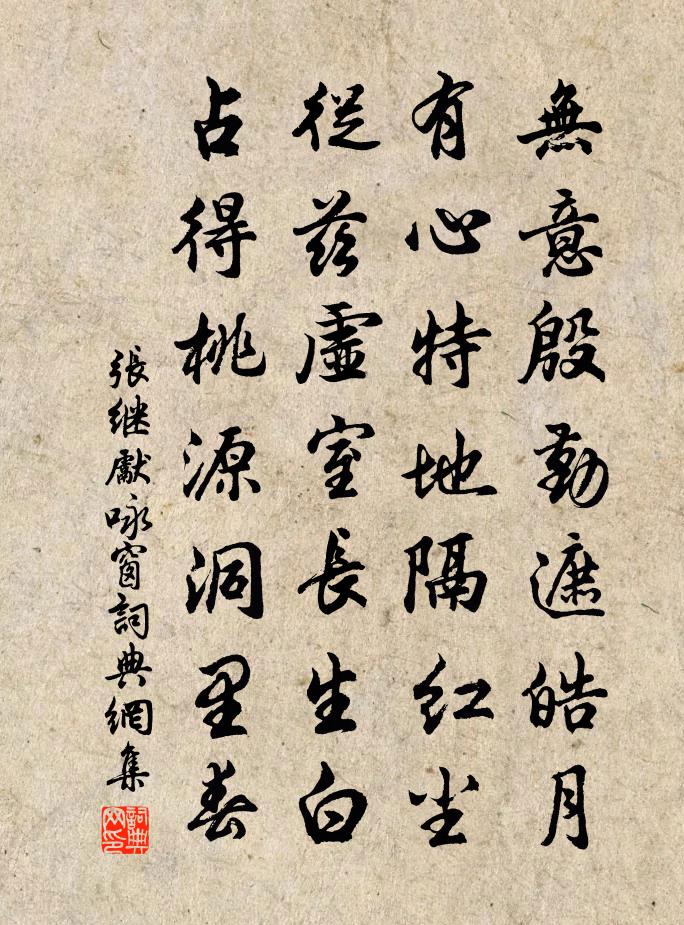 無意殷勤遮皓月
有心特地隔红尘
從茲虛室長生白
占得桃源洞里春
張继獻咏窗詞典網集
詞典网印